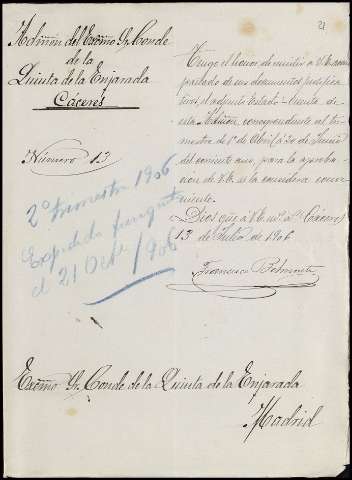 21
Admón del Excmo Sr. Conde
de la
Quinta de la Enjarada
Cáceres
Número 13
2º trimestre 1906
Expedido finiquito
el 21 Octe/906
Tengo el honor de remitir a V.E. acom
pañado de sus documentos justifica
tivos el adjunto Estado-Cuenta de
esta Admón correspondiente al tri
mestre de 1º de Abril á 30 de Junio
del corriente año, para la aproba
ción de V.E. si la considera conve
niente.
Dios gue á V.E. ms. as. Cáceres
13 de Julio de 1906
Francisco
Excmo Sr. Conde de la Quinta de la Enjarada
Madrid